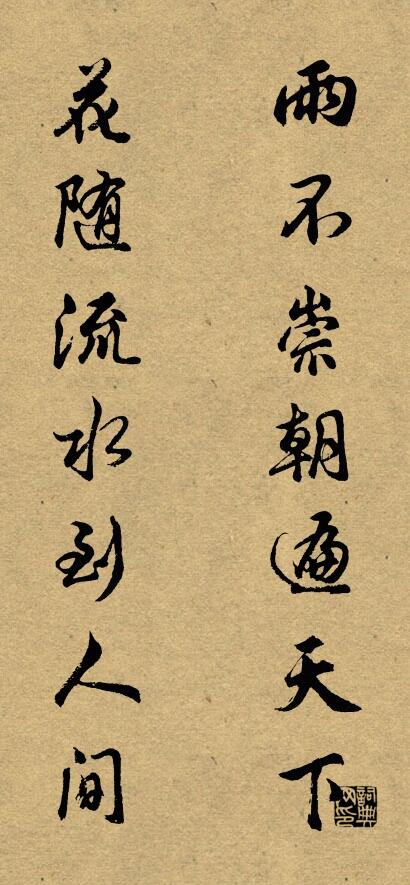 雨不崇朝遍天下
花随流水到人间
詞典